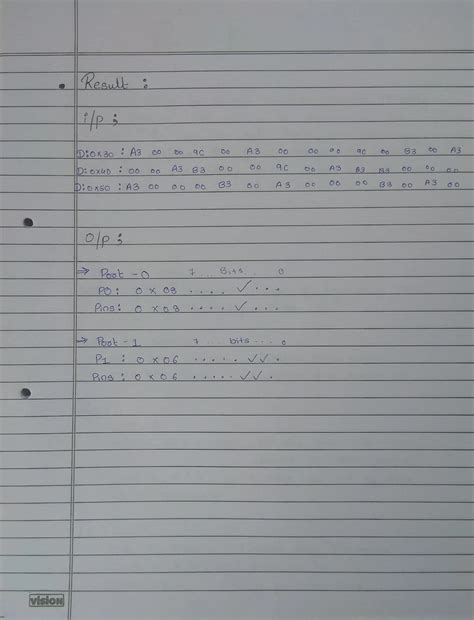 Result :
i/p ;
D:0x30 : A3 00 00 9C 00 A3 00 00 00 00 9C 00 B3 00 A3
D:0x40 : 00 00 A3 B3 00 00 9C 00 A3 A3 B3 00 00 00
D:0x50 : A3 00 00 00 B3 00 A3 00 00 00 B3 00 A3 00
O/P ;
→ Port - 0 7 ... Bits ... 0
P0 : 0 x 08 .... ✓ ...
Pins : 0 x 08 .... ✓ ...
→ Port - 1 7 ... bits ... 0
P1 : 0 x 06 ..... ✓✓ .
Pins : 0 x 06 ..... ✓✓ .
vision